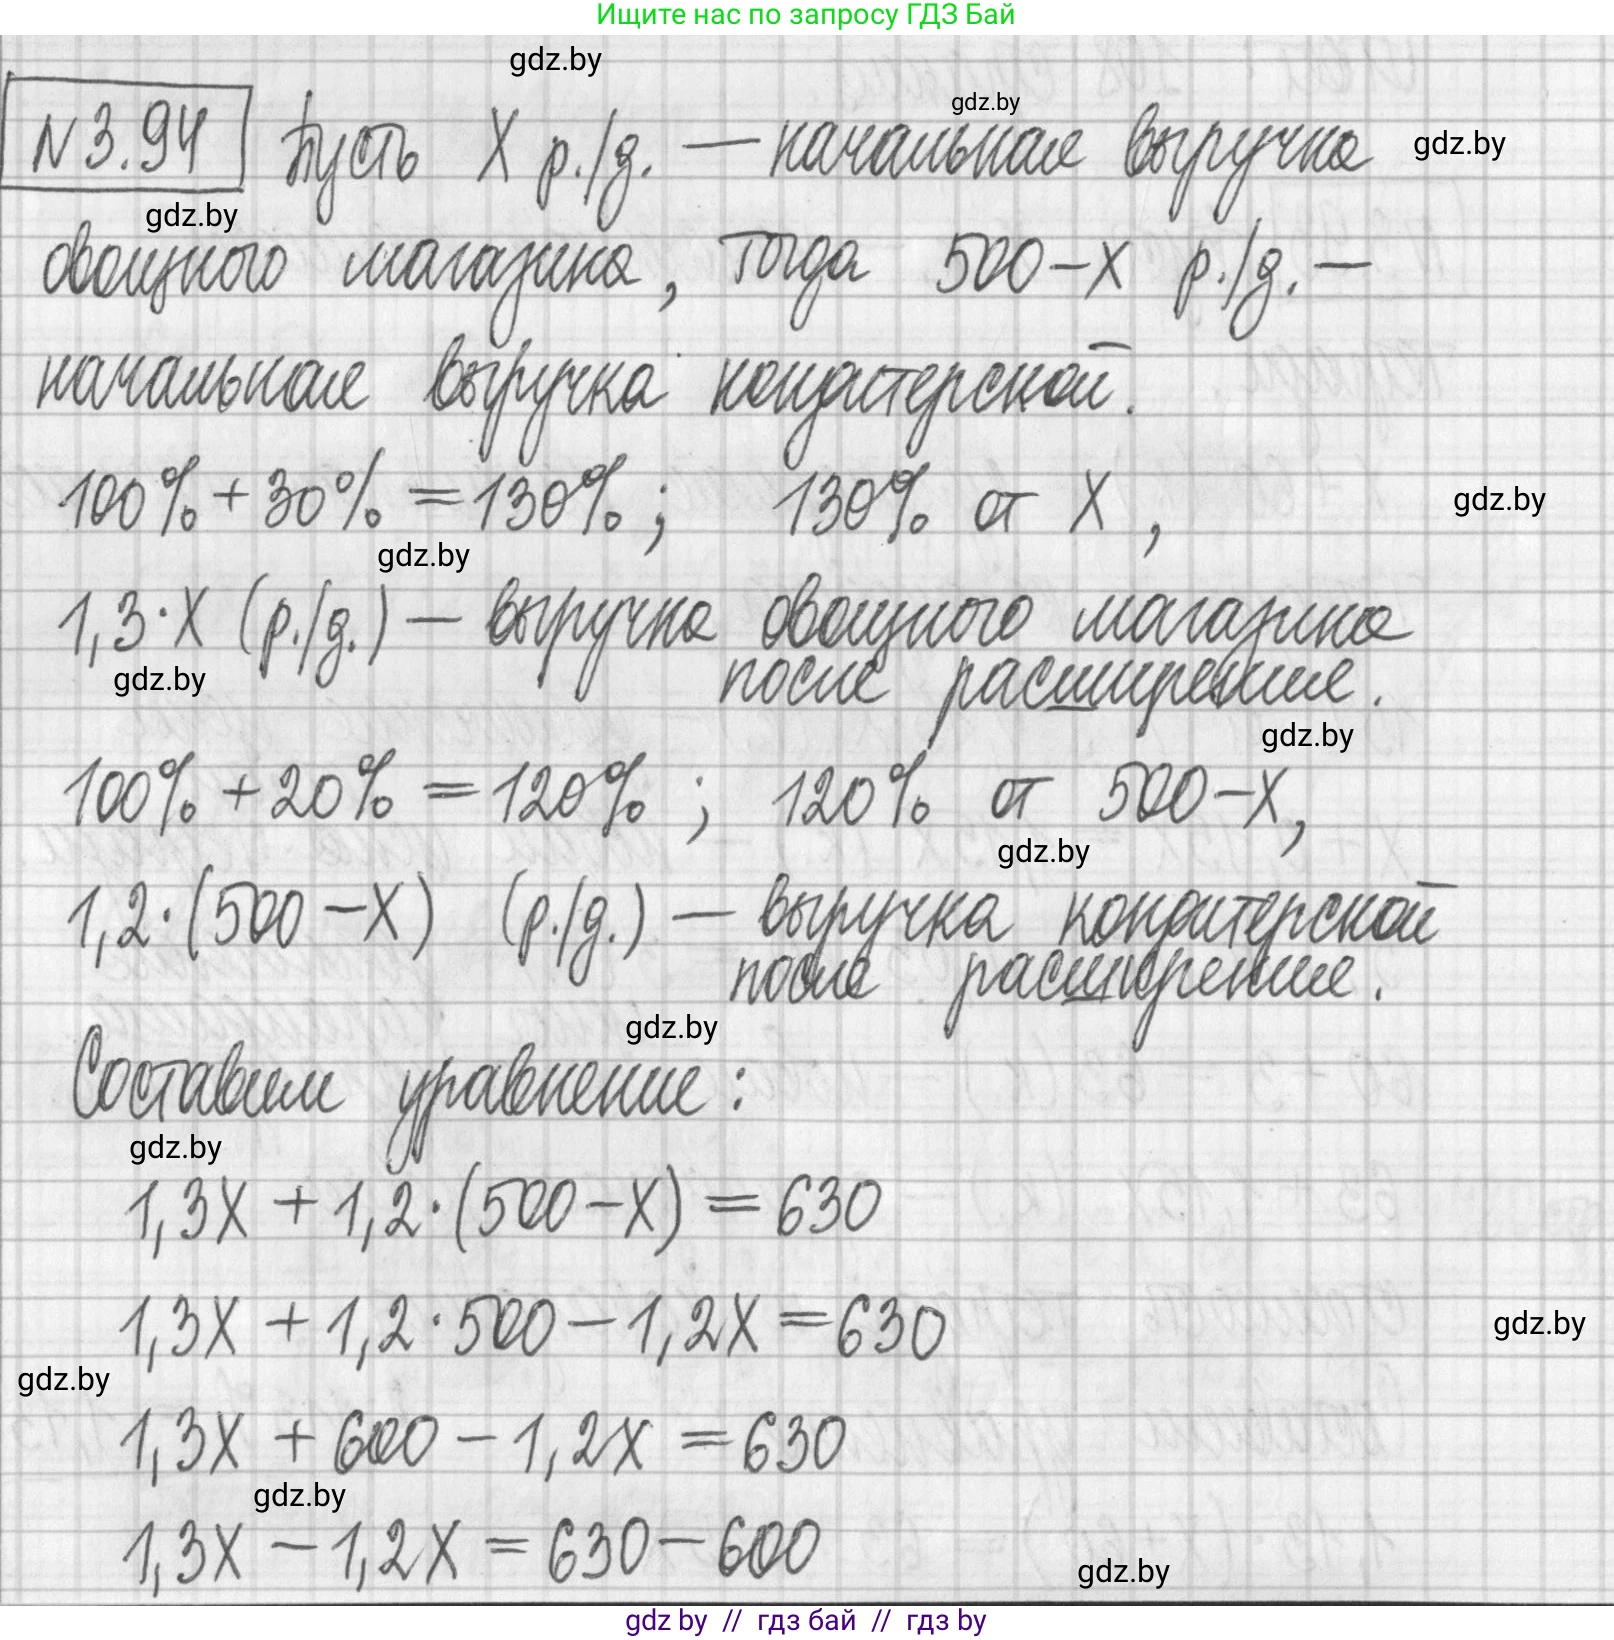 Ищите нас по запросу ГДЗ Бай
gdz.by
gdz.by
N 3.94 Пусть X р./д. — начальная выручка gdz.by
gdz.by
овощного магазина, тогда 500-X р./д. —
начальная выручка кондитерской.
100% + 30% = 130% ; 130% от X , gdz.by
gdz.by
1,3·X (р./д.) — выручка овощного магазина
gdz.by
после расширения.
gdz.by
100% + 20% = 120% ; 120% от 500-X,
gdz.by
1,2·(500-X) (р./д.) — выручка кондитерской
после расширения.
gdz.by
Составим уравнение:
gdz.by
1,3X + 1,2·(500-X) = 630
1,3X + 1,2·500 - 1,2X = 630 gdz.by
gdz.by
1,3X + 600 - 1,2X = 630
gdz.by
1,3X - 1,2X = 630 - 600
gdz.by
gdz by // гдз бай // гдз by